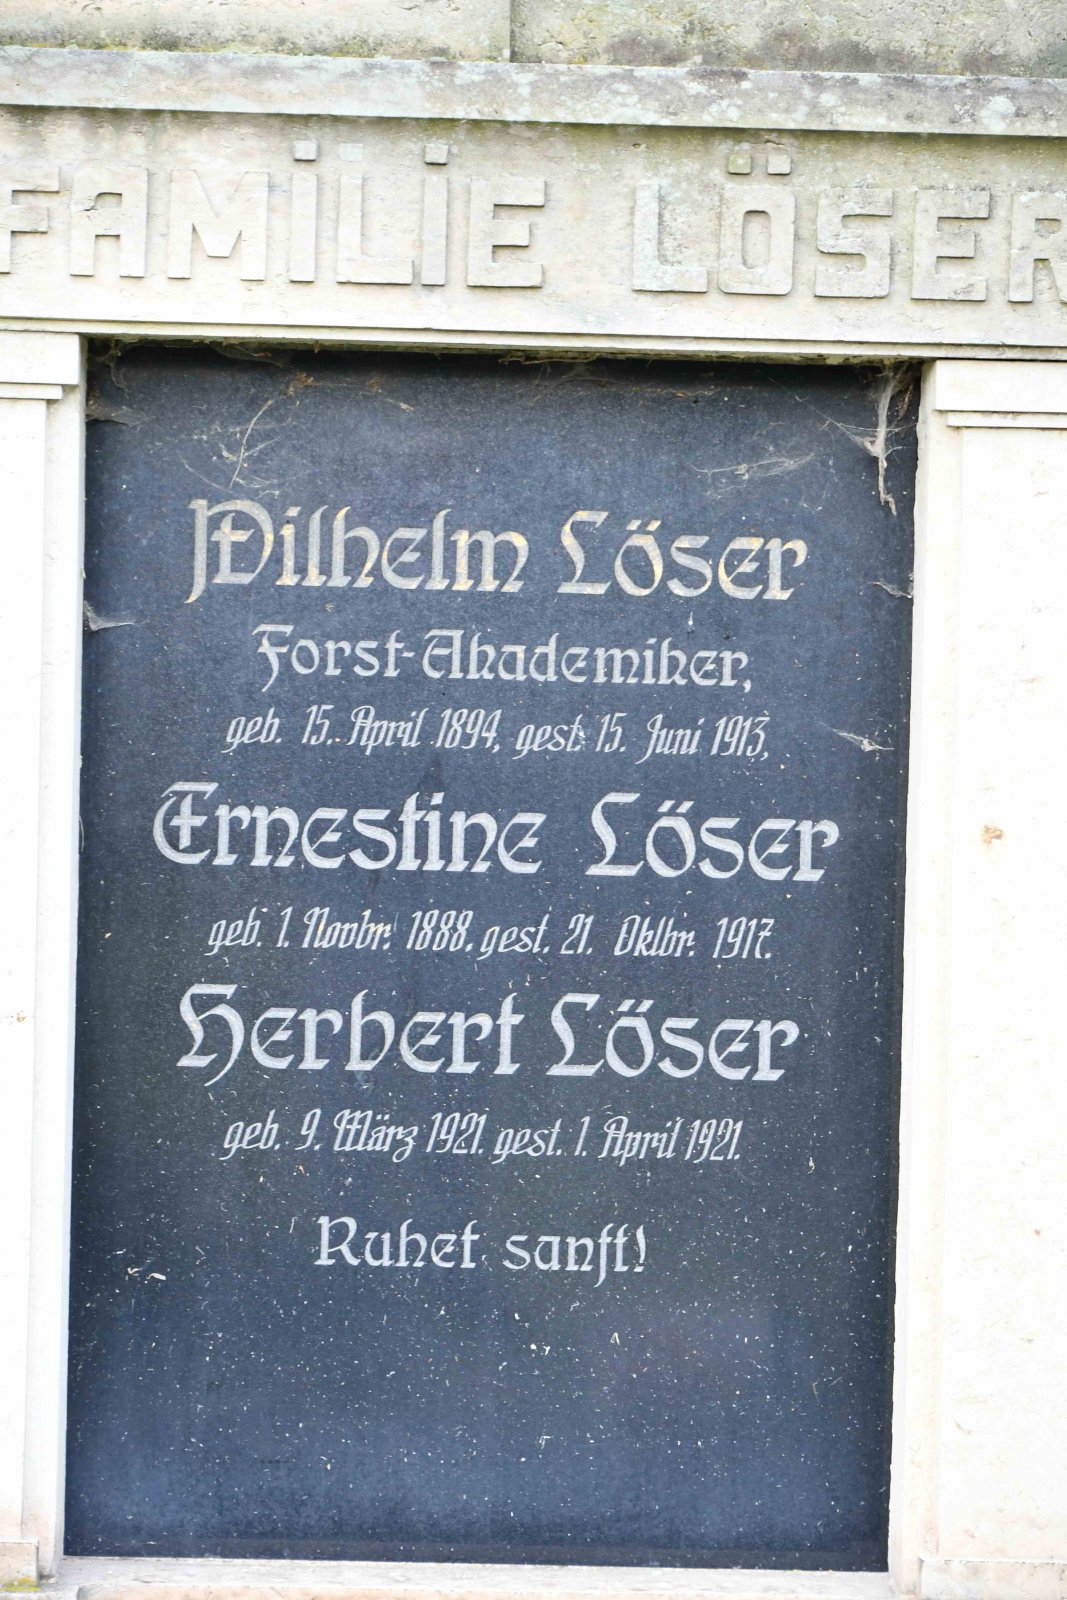 FAMILIE LÖSER
Wilhelm Löser
Forst-Akademiker,
geb. 15. April 1894, gest. 15. Juni 1913,
Ernestine Löser
geb. 1. Novbr. 1888. gest. 21. Oktbr. 1917.
Herbert Löser
geb. 9. März 1921. gest. 1. April 1921.
Ruhet sanft!